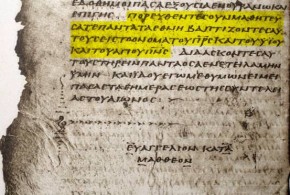 ΕΔΟΘΗΜΟΙΠΑΣΑΕΞΟΥΣΙΑΕΝΟΥΡΑΝΩΚΑΙ
ΕΠΙΓΗΣ· ΠΟΡΕΥΘΕΝΤΕΣΟΥΝΜΑΘΗΤΕΥ
ΣΑΤΕΠΑΝΤΑΤΑΕΘΝΗ ΒΑΠΤΙΖΟΝΤΕΣΑΥ
ΤΟΥΣΕΙΣΤΟΟΝΟΜΑΤΟΥΠΡΣΚΑΙΤΟΥΥΙΟΥ
ΚΑΙΤΟΥΑΓΙΟΥΠΝΣ· ΔΙΔΑΣΚΟΝΤΕΣΑΥ
ΤΟΥΣΤΗΡΕΙΝΠΑΝΤΑΟΣΑΕΝΕΤΕΙΛΑΜΗΝ
ΥΜΙΝ· ΚΑΙΙΔΟΥΕΓΩΜΕΘΥΜΩΝΕΙΜΕΙ
ΠΑΣΑΣΤΑΣΗΜΕΡΑΣΕΩΣΤΗΣΣΥΝΤΕΛΕΙ
ΑΣΤΟΥΑΙΩΝΟΣ
ΕΥΑΓΓΕΛΙΟΝ ΚΑΤΑ
ΜΑΘΘΕΟΝ